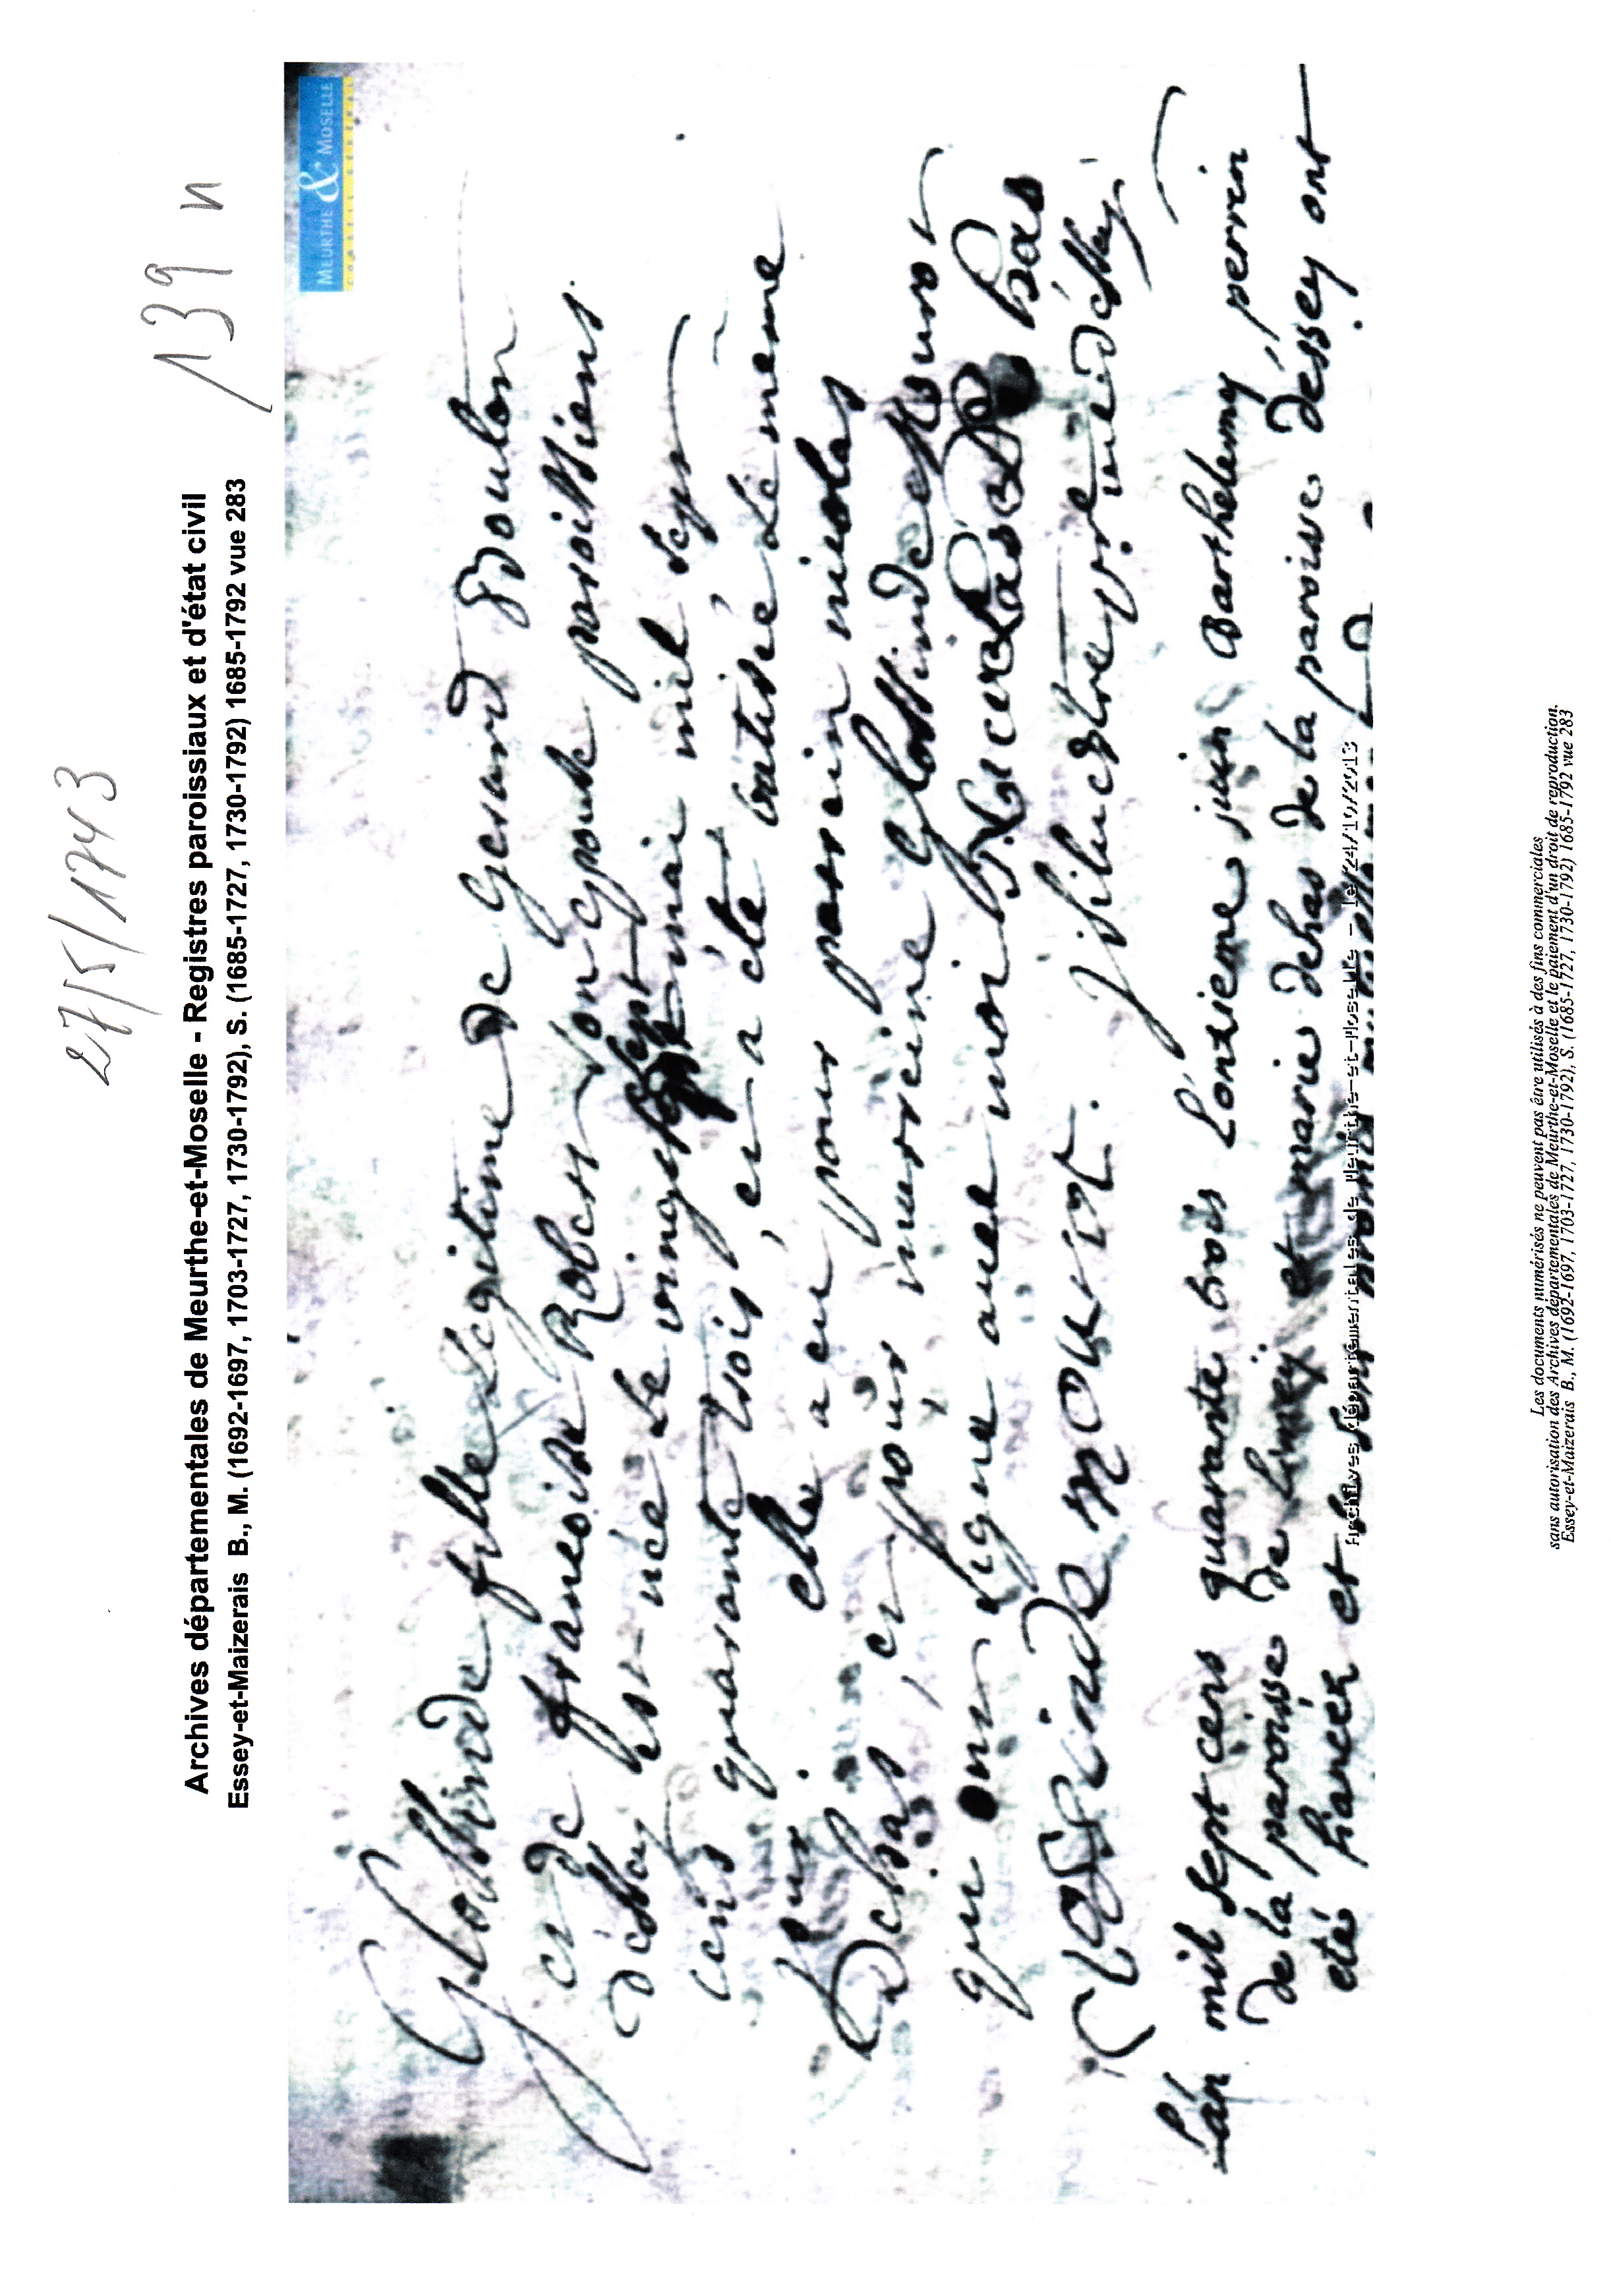 27/5/1743
139 n
Archives départementales de Meurthe-et-Moselle - Registres paroissiaux et d'état civil
Essey-et-Maizerais B., M. (1692-1697, 1703-1727, 1730-1792), S. (1685-1727, 1730-1792) 1685-1792 vue 283
MEURTHE & MOSELLE
CONSEIL GENERAL
Glossinde fille Legitime de Gerard Boulon
et de françoise Robert son Epouse paroissiens
déssey est née le vingt sept mai mil sept
cens quarante trois, et a été batisé Le même
jour. elle a eu pour parein nicolas
Dehas, et pour mareine Glossinde
qui ont signé avec moi Nicolas de has
Glosinde
Lán mil sept cens quarante trois Lonzieme juin Barthelemy perrin
de la paroisse de Limey et marie dehas de la paroisse déssey ont
eté fiancér et
Archives départementales de Meurthe-et-Moselle - le 24/10/2013
Les documents numérisés ne peuvent pas être utilisés à des fins commerciales
sans autorisation des Archives départementales de Meurthe-et-Moselle et le paiement d'un droit de reproduction.
Essey-et-Maizerais B., M. (1692-1697, 1703-1727, 1730-1792), S. (1685-1727, 1730-1792) 1685-1792 vue 283